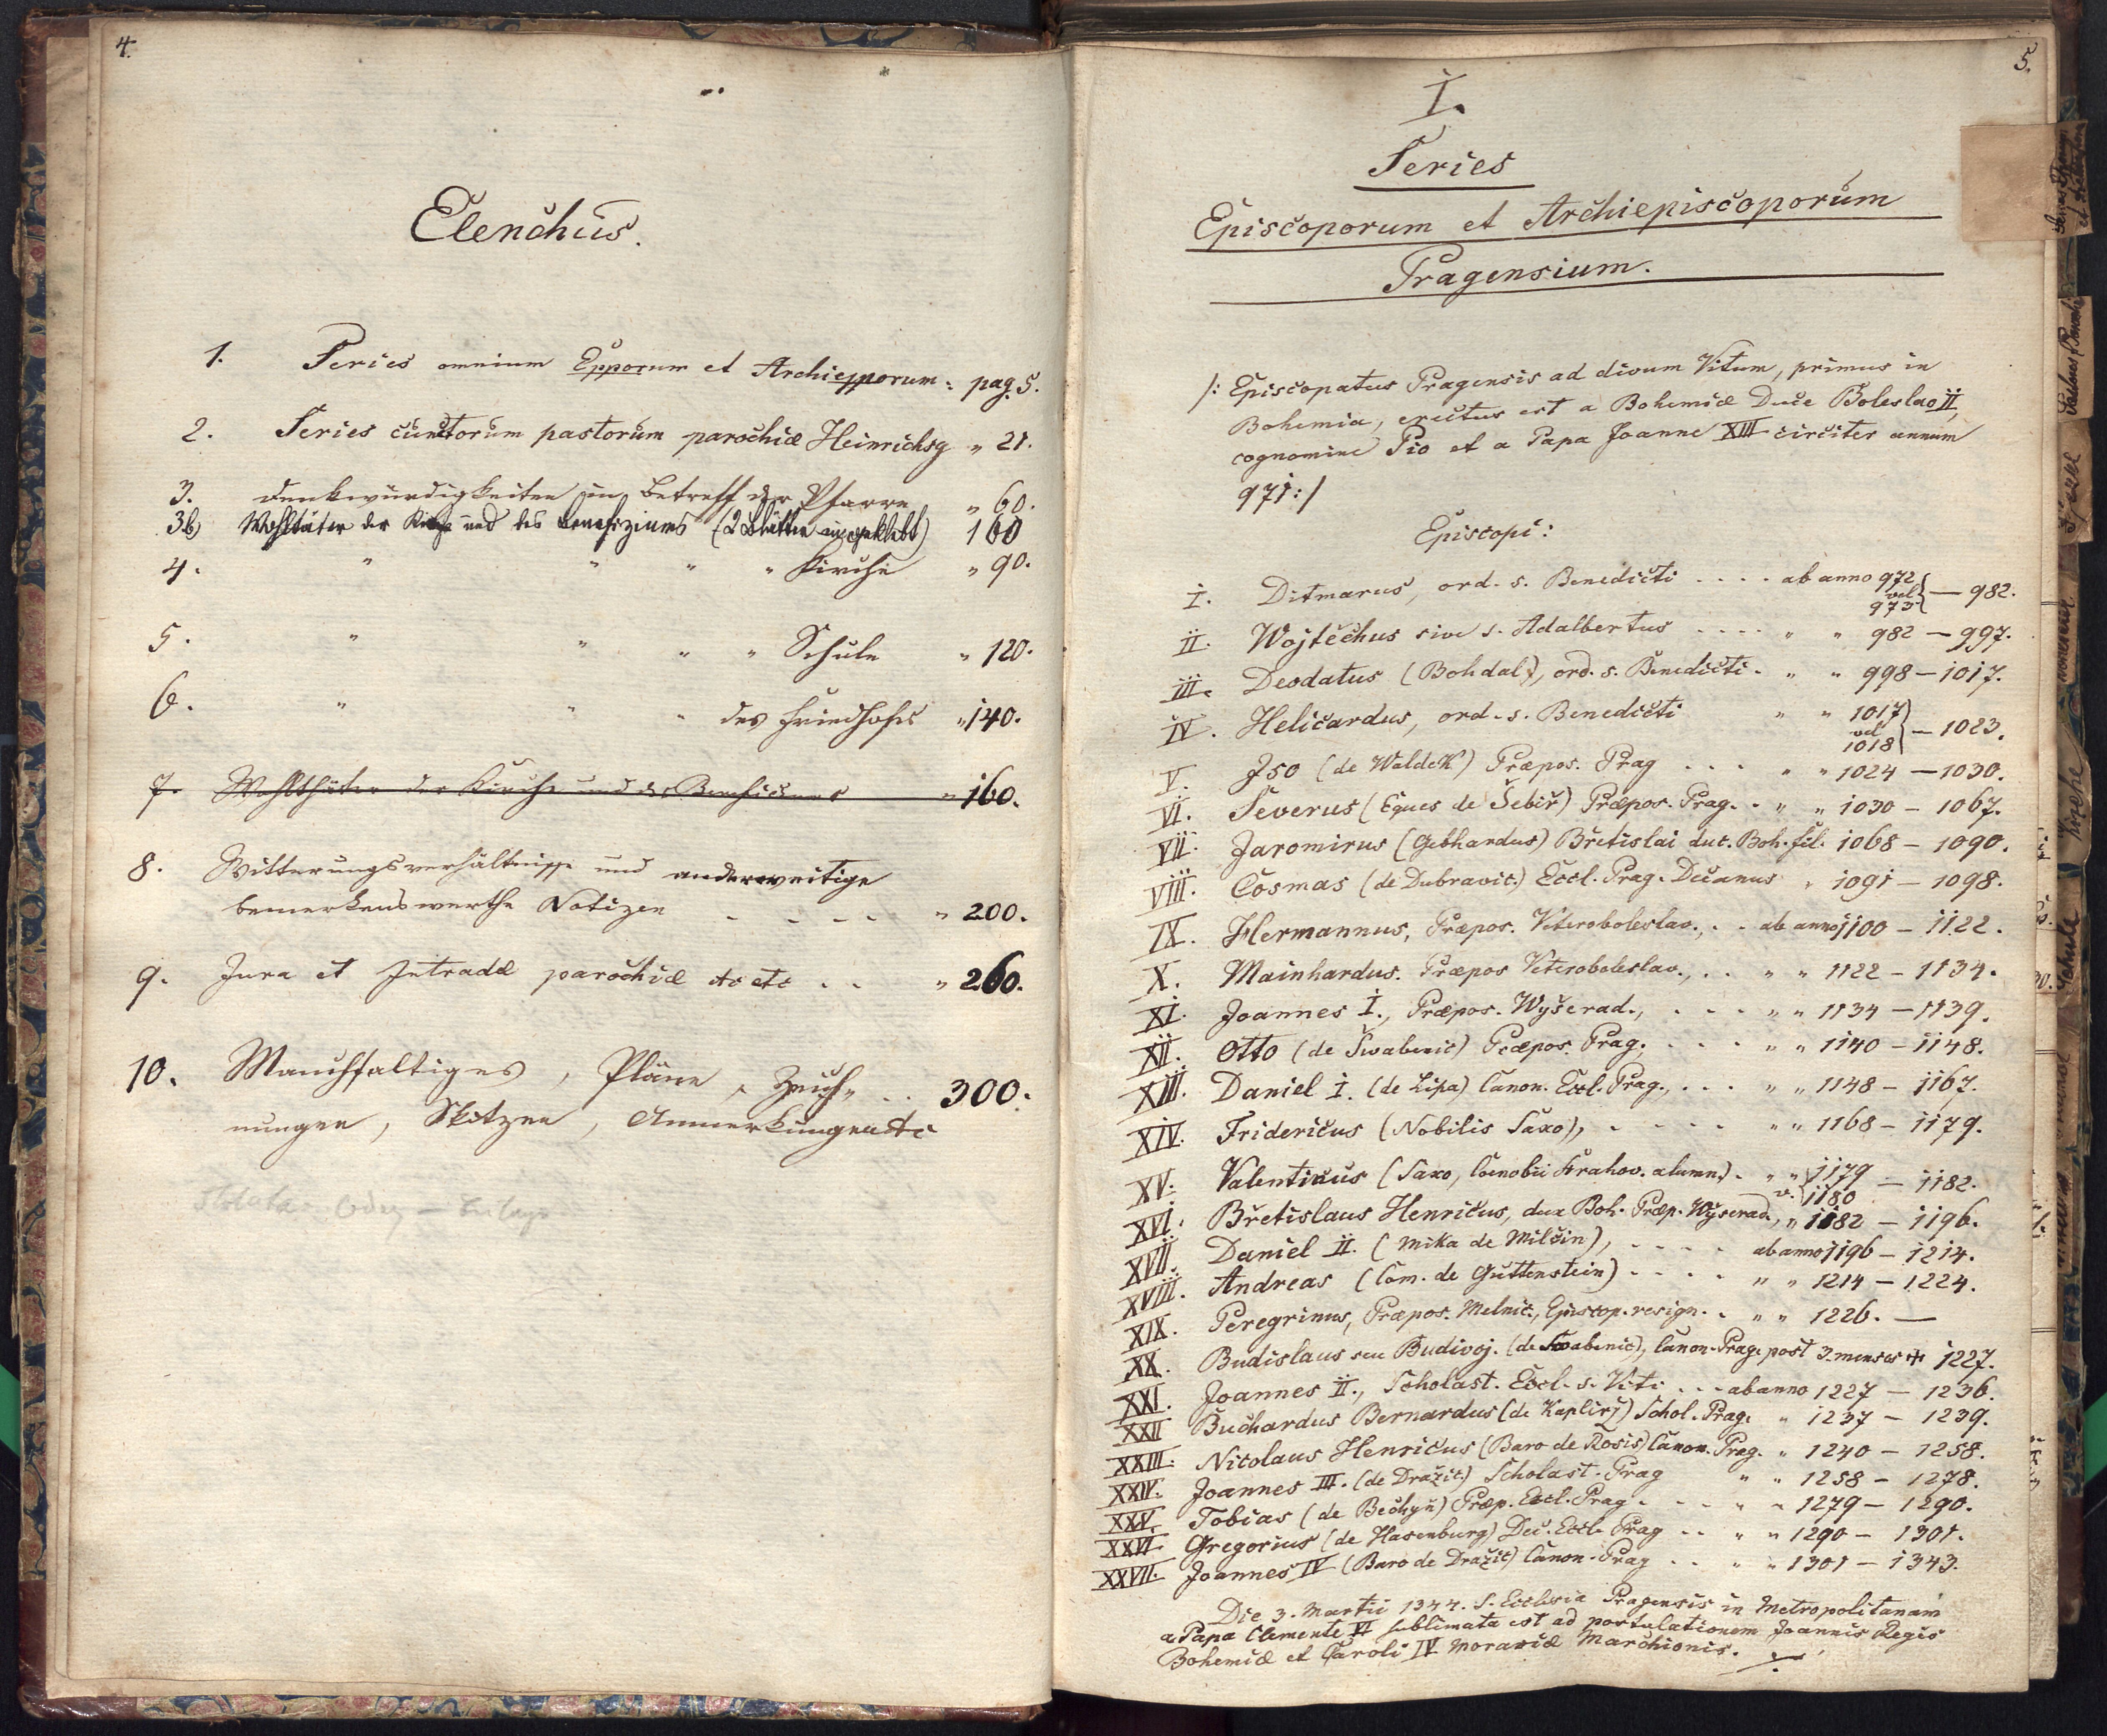 4.
Elenchus.
1. Series omnium Epporum et Archiepporum: pag. 5.
2. Series cunctorum pastorum parochiæ Heinrichsg „ 21.
3. Denkwürdigkeiten in Betreff der Pfarre „ 60.
3b) Wohltäter der Kirche und des Benefiziums (2 Blätter eingeklebt) 160
4. „ „ „ „ Kirche „ 90.
5. „ „ „ „ Schule „ 120.
6. „ „ „ des Friedhofes „ 140.
7. Wohlthäter der Kirche und des Beneficiums „ 160.
8. Witterungsverhältnisse und anderweitige
bemerkenswerthe Notizen - - - - „ 200.
9. Jura et Intradæ parochiæ etc etc . . „ 260.
10. Manchfaltiges, Pläne, Zeich„ . . 300.
nungen, Skitzen, Anmerkungen etc
5.
I.
Series
Episcoporum et Archiepiscoporum
Pragensium.
/: Episcopatus Pragensis ad divum Vitum, primus in
Bohemia, erectus est a Bohemiæ Duce Boleslao II,
cognomine Pio et a Papa Joanne XIII circiter annum
971 :/
Episcopi:
I. Ditmarus, ord. s. Benedicti . . . . ab anno 972 vel 973 — 982.
II. Wojtěchus sive s. Adalbertus . . . . „ „ 982 — 997.
III. Deodatus (Bohdal), ord. s. Benedicti . „ „ 998 — 1017.
IV. Helicardus, ord. s. Benedicti „ „ 1017 vel 1018 — 1023.
V. Iso (de Waldek) Præpos. Prag . . . „ „ 1024 — 1030.
VI. Severus (Eques de Šebiř) Præpos. Prag. . „ „ 1030 — 1067.
VII. Jaromirus (Gebhardus) Břetislai duc. Boh. fil. 1068 — 1090.
VIII. Cosmas (de Dubravic.) Eccl. Prag. Decanus „ 1091 — 1098.
IX. Hermannus, Præpos. Veteroboleslav., . . ab anno 1100 — 1122.
X. Mainhardus. Præpos Veteroboleslav., . . „ „ 1122 — 1134.
XI. Joannes I., Præpos. Wyšerad., . . . „ „ 1134 — 1139.
XII. Otto (de Swabenic) Præpos. Prag., . . . „ „ 1140 — 1148.
XIII. Daniel I. (de Lipa) Canon. Eccl. Prag., . . . „ „ 1148 — 1167.
XIV. Fridericus (Nobilis Saxo), . . . . „ „ 1168 — 1179.
XV. Valentinus (Saxo, Cœnobii Strahov. alumn.) . „ „ 1179 v. 1180 — 1182.
XVI. Břetislaus Henricus, dux Boh. Præp. Wyšerad., „ 1182 — 1196.
XVII. Daniel II. (Mika de Milčin), . . . . ab anno 1196 — 1214.
XVIII. Andreas (Com. de Guttenstein) . . . . „ „ 1214 — 1224.
XIX. Peregrinus, Præpos. Melnic., Episcop. resign. . „ „ 1226. —
XX. Budislaus seu Budivoj. (de Swabenic), Canon. Prag. post 3 menses ✝ 1227.
XXI. Joannes II., Scholast. Eccl. s. Viti . . . ab anno 1227 — 1236.
XXII Buchardus Bernardus (de Kaplirž) Schol. Prag. „ 1237 — 1239.
XXIII. Nicolaus Henricus (Baro de Rosis) Canon. Prag. „ 1240 — 1258.
XXIV. Joannes III. (de Dražic.) Scholast. Prag „ „ 1258 — 1278.
XXV. Tobias (de Bechyň) Præp. Eccl. Prag . . . „ „ 1279 — 1290.
XXVI. Gregorius (de Hasenburg) Dec. Eccl. Prag . . „ „ 1290 — 1301.
XXVII. Joannes IV (Baro de Dražic) Canon. Prag . . „ „ 1301 — 1343.
Die 3. Martii 1344. S. Ecclesia Pragensis in Metropolitanam
a Papa Clemente VI sublimata est ad postulationem Joannis Regis
Bohemiæ et Caroli IV Moraviæ Marchionis.
Kirche
Schule